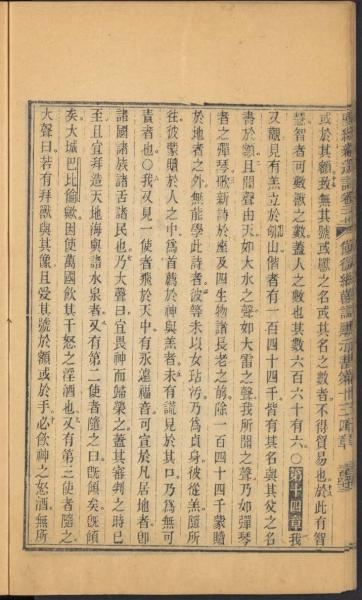 或於其額敖無其號或獸之名或其名之數者不得貿易也於此有智
慧智者可數獸之數蓋人之數也其數六百六十有六○第十四章我
又觀見有羔立於邭山偕者有一百四十四千皆有其名與其父之名
書於額且聞聲由天如大水之聲如大雷之聲我所聞之聲乃如彈琴
者之彈琴謌新詩於座及四生物諸長老之前除一百四十四千蒙贖
於地者之外無能學此詩者彼等未以女玷污乃為貞身彼從羔隨所
往彼蒙贖於人之中為首薦於神與羔者未有謊見於其口乃為無可
責者也○我又見一使者飛於天中有永遠福音可宣於凡居地者卽
諸國諸族諸舌諸民也乃大聲曰宜畏神而歸榮之蓋其審判之時已
至且宜拜造天地海與諸水泉者又有第二使者隨之曰旣傾矣旣傾
矣大城巴比倫歟因使萬國飲其干怒之淫酒也又有第三使者隨之
大聲曰若有拜獸與其像且受其號於額或於手必飲神之怒酒無所